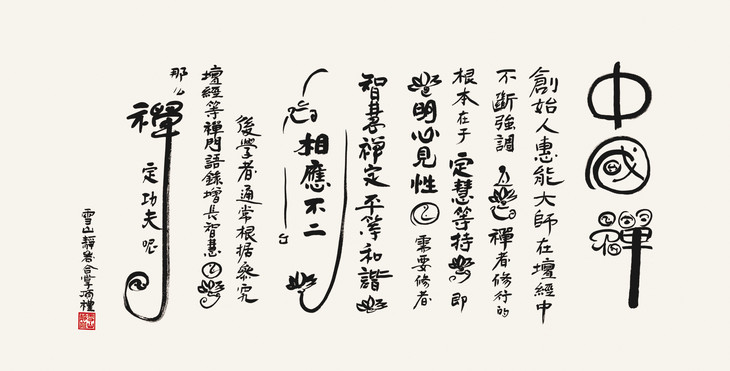 中國禪
創始人惠能大師在壇經中
不斷強調禪者修行的
根本在于定慧等持即
明心見性需要修者
智慧禪定平等和諧
相應不二
後學者通常根據參究
壇經等禪門語錄增長智慧
那么禪定功夫呢
雪山靜岩合掌頂禮